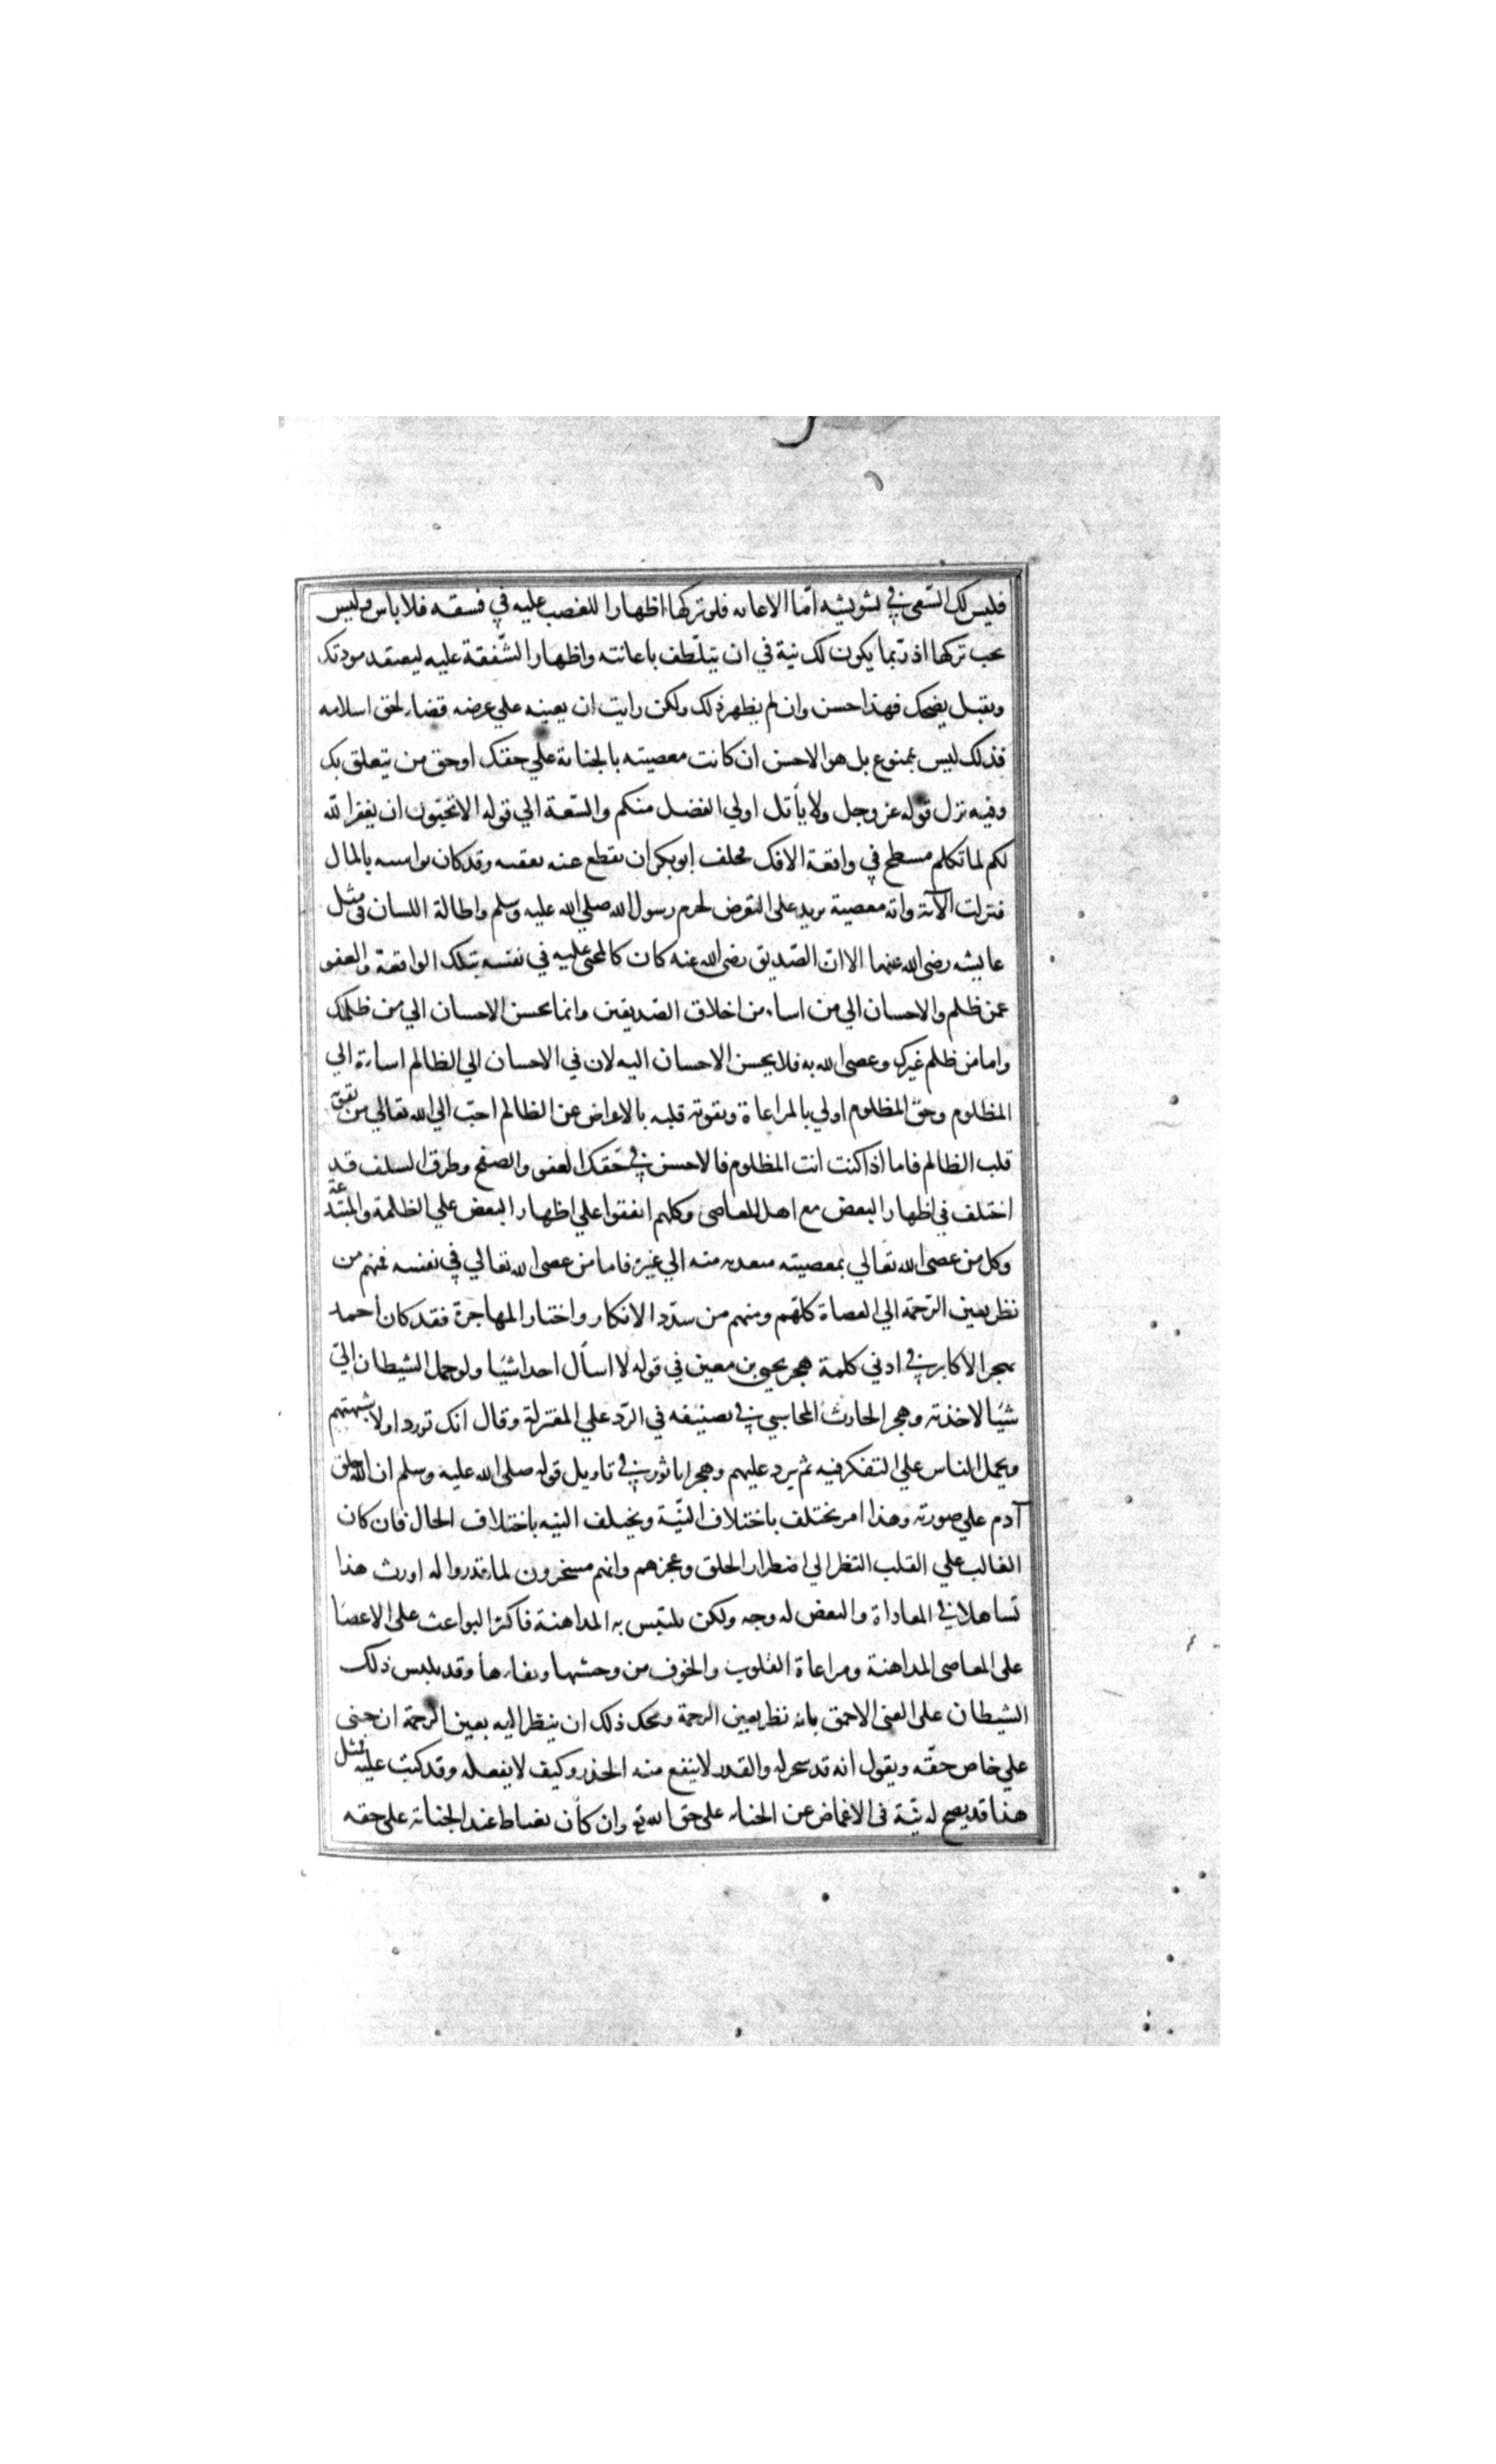 فليس لك السّعي في تشويشه امّا الاعانه فلو تركها اظهارا للغضب عليه في فسقه فلا باس وليس
يجب تركها اذ ربّما يكون لك نية في ان يتلّطف باعانته واظهار الشّفقة عليه ليعتقد مودتك
ويقبل نصحك فهذا حسن وان لم يظهر ذلك ولكن رايت ان يعينه علي غرضه قضاء لحق اسلامه
فذلك ليس بممنوع بل هو الاحسن ان كانت معصيته بالجناية علي حقك او حق من يتعلق بك
وفيه نزل قوله عز وجل ولا يأتل اولي الفضل منكم والسّعة الي قوله الا تحبّون ان يغفر الله
لكم لما تكلم مسطح في واقعة الافك فحلف ابو بكر ان يقطع عنه نفقته وقد كان يواسيه بالمال
فنزلت الآية واية معصية يزيد على التعرض لحرم رسول الله صلي الله عليه وسلم واطالة اللسان في مثل
عايشه رضى الله عنهما الا انّ الصّديق رضى الله عنه كان كالمجنى عليه في نفسه بتلك الواقعة والعفو
عمن ظلم والاحسان الي من اساء من اخلاق الصّديقين وانما يحسن الاحسان الي من ظلمك
واما من ظلم غيرك وعصى الله به فلا يحسن الاحسان اليه لان في الاحسان الي الظالم اساءة الي
المظلوم وحق المظلوم اولي بالمراعاة وتقوية قلبه بالاعراض عن الظالم احبّ الي الله تعالي من تقوية
قلب الظالم فاما اذا كنت انت المظلوم فالاحسن في حقك العفو والصفح وطرق السلف قد
اختلف في اظهار البغض مع اهل المعاصى وكلهم اتفقوا علي اظهار البغض علي الظلمة والمبتدعة
وكل من عصى الله تعالي بمعصيته متعديه منه الي غيره فاما من عصى الله تعالي في نفسه فمنهم من
نظر بعين الرّحمة الي العصاة كلّهم ومنهم من شدّد الانكار واختار المهاجرة فقد كان احمد
يهجر الاكابر في ادني كلمة هجر يحيى بن معين في قوله لا اسأل احدا شيًا ولو حمل الشيطان اليّ
شيًا لاخذته وهجر الحارث المحاسبي في تصنيفه في الرّد علي المعتزلة وقال انك تورد اولا شبهتهم
ويحمل الناس علي التفكر فيه ثم يرد عليهم وهجر ابا ثور في تاويل قوله صلى الله عليه وسلم ان الله خلق
آدم علي صورته وهذا امر يختلف باختلاف النيّة ويختلف النيه باختلاف الحال فان كان
الغالب علي القلب النظر الي اضطرار الخلق وعجزهم وانهم مسخرون لما قدروا له اورث هذا
تساهلا في المعاداة والبغض له وجه ولكن يلتبس به المداهنة فاكثر البواعث على الاغضا
على المعاصى المداهنة ومراعاة القلوب والخوف من وحشها ونفارها وقد يلبس ذلك
الشيطان على الغبى الاحمق بانه نظر بعين الرحمة ومحك ذلك ان ينظر اليه بعين الرحمة ان جنى
علي خاص حقّه ويقول انه قد سخر له والقدر لا ينفع منه الحذر وكيف لا يفعله وقد كتب عليه فمثل
هذا قد يصح له نيّة في الاغماض عن الجنايه على حق الله تع وان كان يغتاظ عند الجناية على حقه